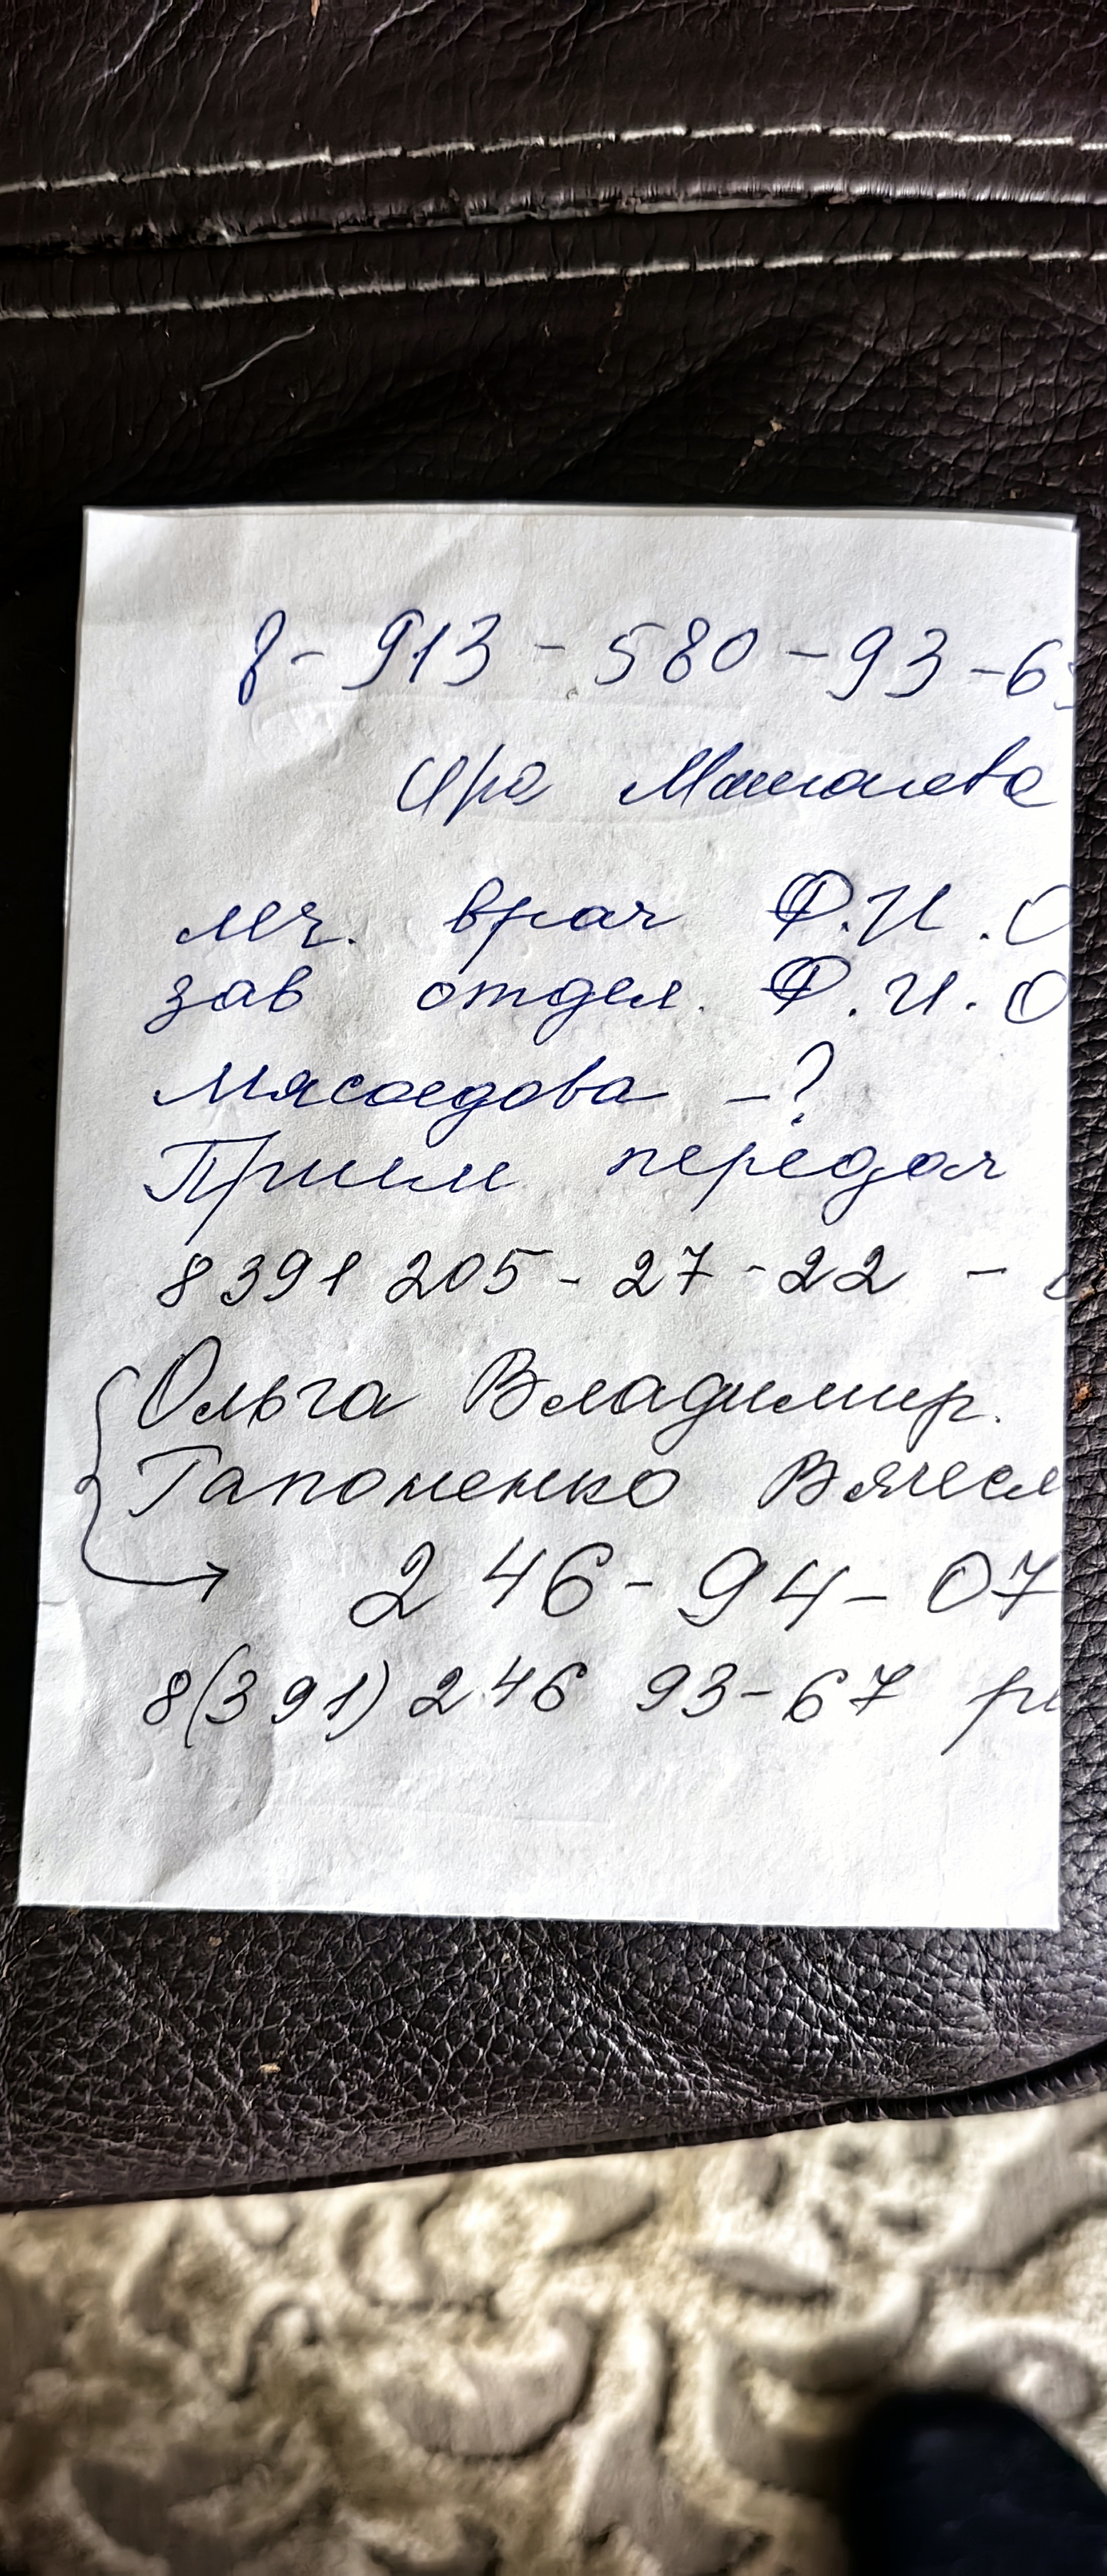 8-913-580-93-6
Ира
леч. врач Ф.И.О
зав отдел. Ф.И.О
Мясоедова -?
Прием передач
8391 205-27-22 -
Ольга Владимир.
Гапоненко Вячесл
246-94-07
8(391) 246 93-67